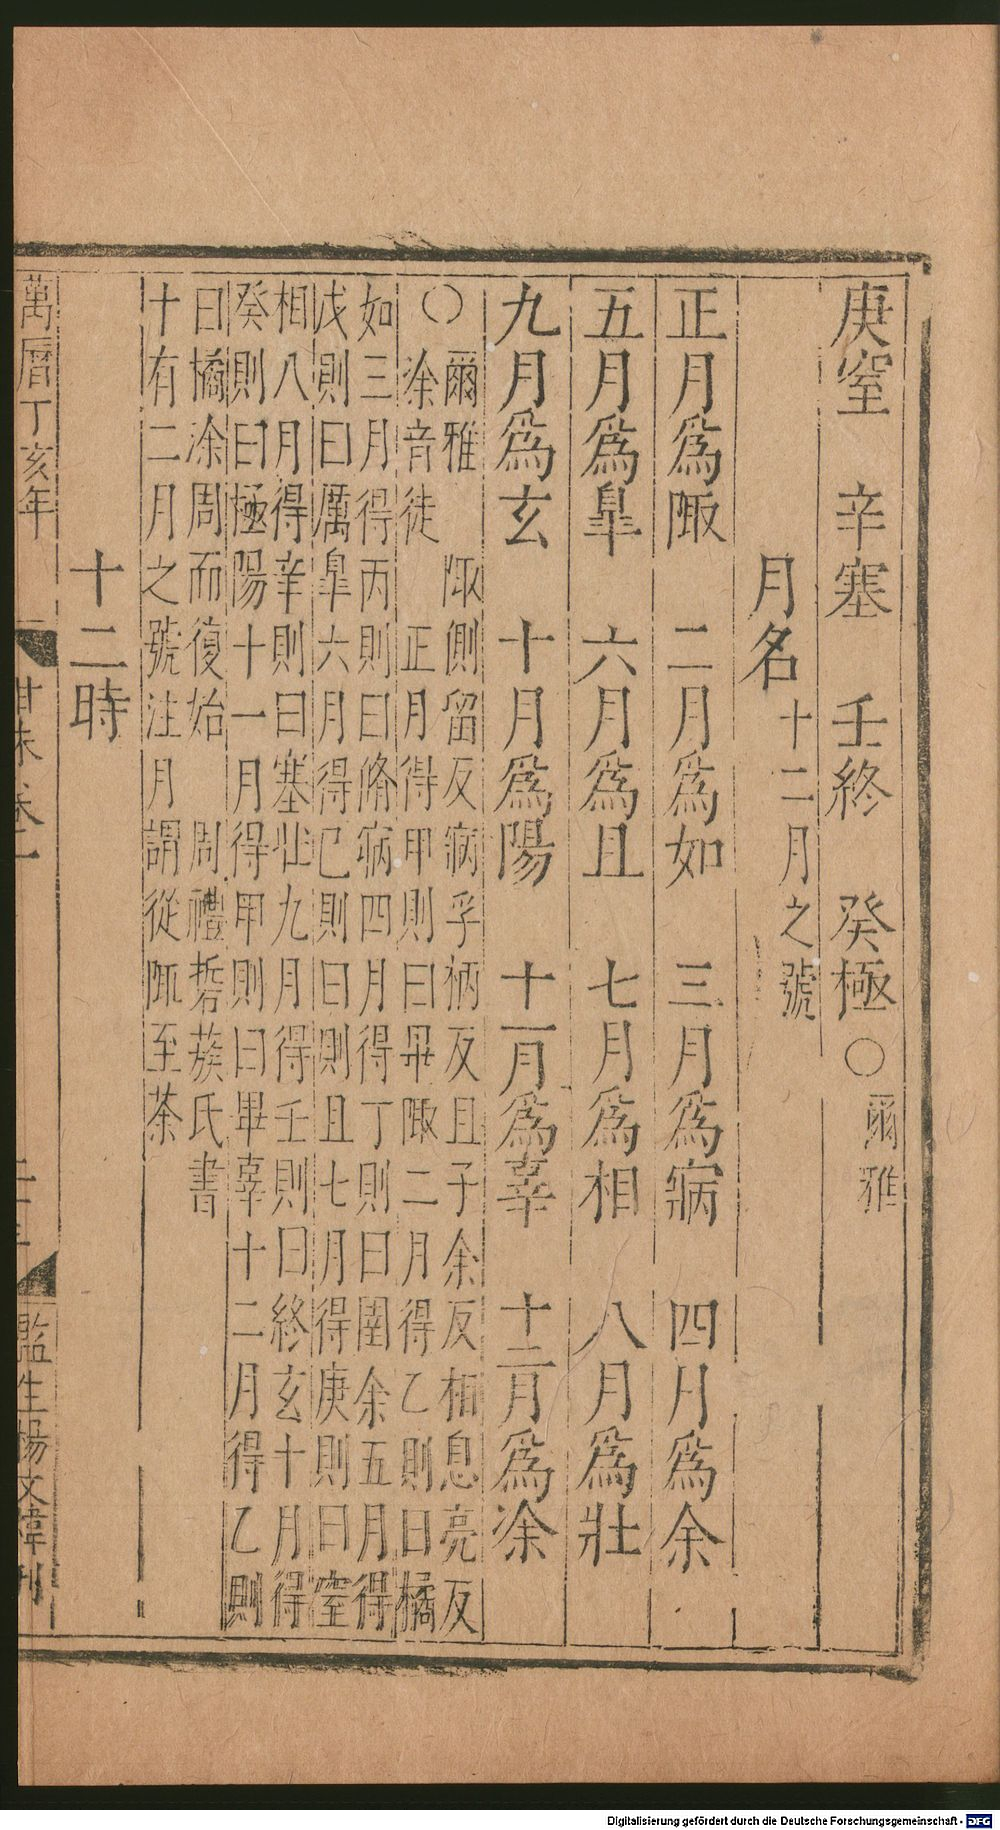 庚窒　辛塞　壬終　癸極○爾雅
月名十二月之號
正月爲陬　二月爲如　三月爲寎　四月爲余
五月爲臯　六月爲且　七月爲相　八月爲壯
九月爲玄　十月爲陽　十一月爲辜　十二月爲涂
○爾雅　陬側留反寎孚柄反且子余反相息亮反
涂音徒　正月得甲則曰畢陬二月得乙則曰橘
如三月得丙則曰脩寎四月得丁則曰圉余五月得
戊則曰厲臯六月得巳則曰則且七月得庚則曰窒
相八月得辛則曰塞壯九月得壬則曰終玄十月得
癸則曰極陽十一月得甲則曰畢辜十二月得乙則
曰橘涂周而復始　周禮硩蔟氏書
十有二月之號注月謂從陬至荼
十二時
萬曆丁亥年
卷一
監生楊文偉刊
Digitalisierung gefördert durch die Deutsche Forschungsgemeinschaft - DFG